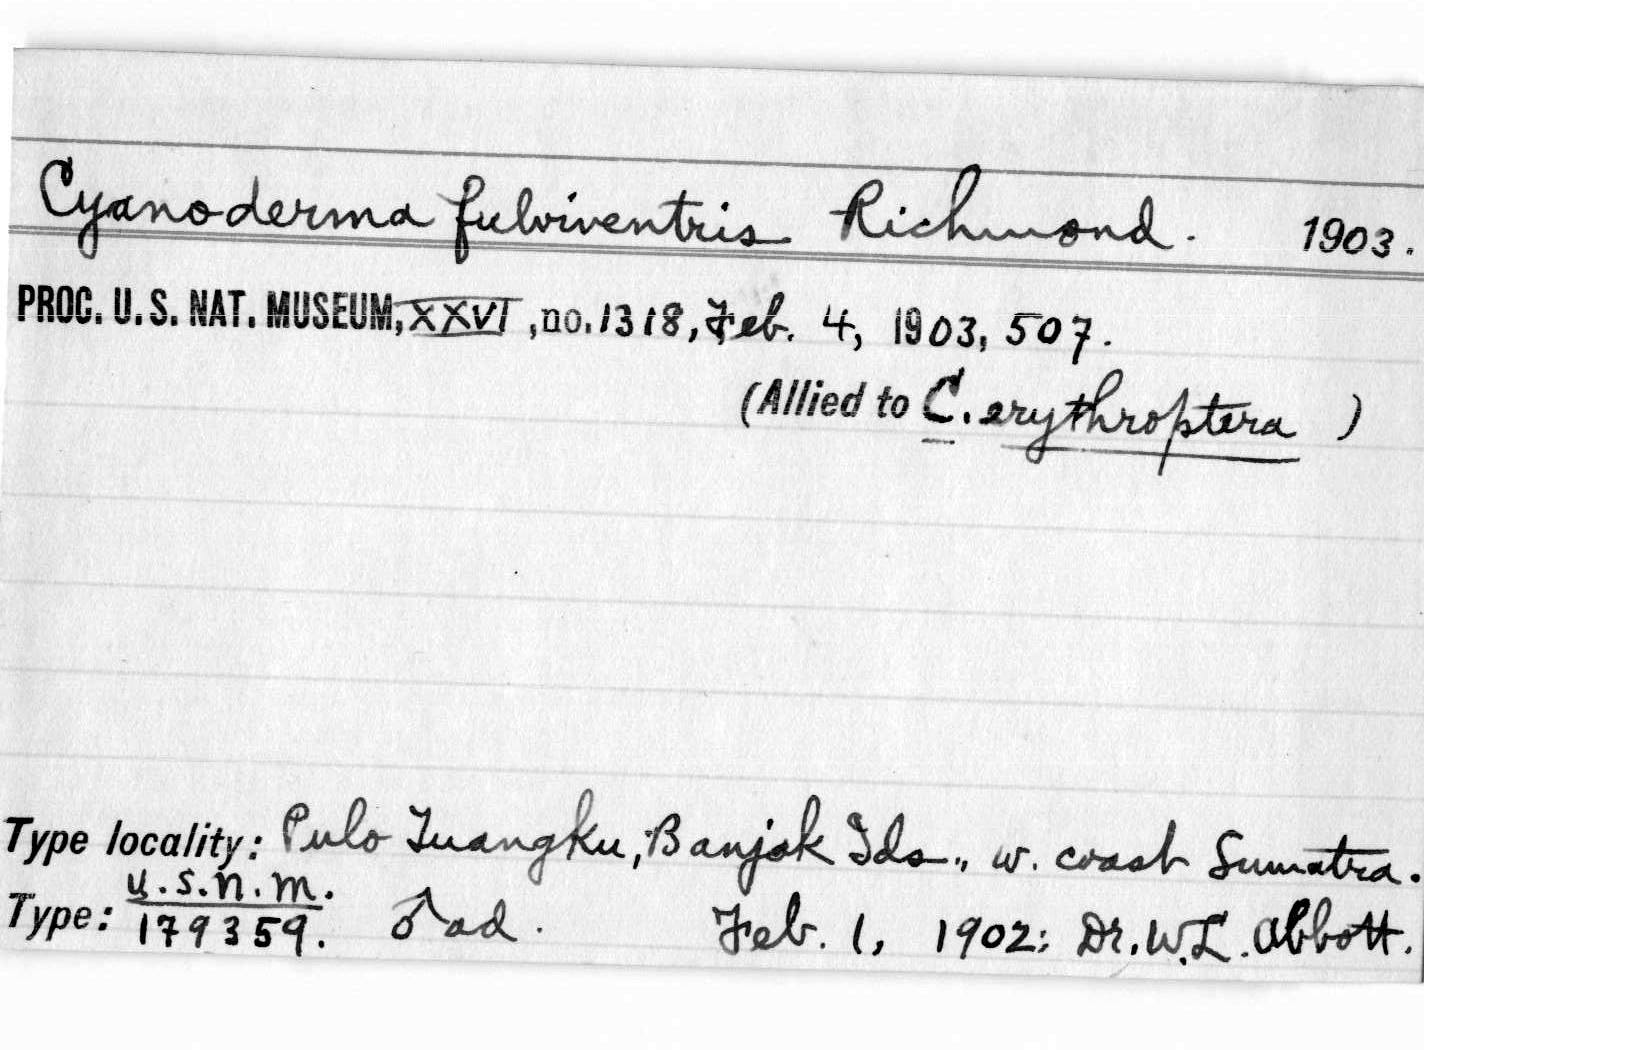 Cyanoderma fulviventris Richmond. 1903.
PROC. U. S. NAT. MUSEUM, XXVI, no. 1318, Feb. 4, 1903, 507.
(Allied to C. erythroptera )
Type locality: Pulo Tuangku, Banjak Ids., w. coast Sumatra.
U.S.N.M.
Type: 179359. ♂ ad. Feb. 1, 1902; Dr. W. L. Abbott.